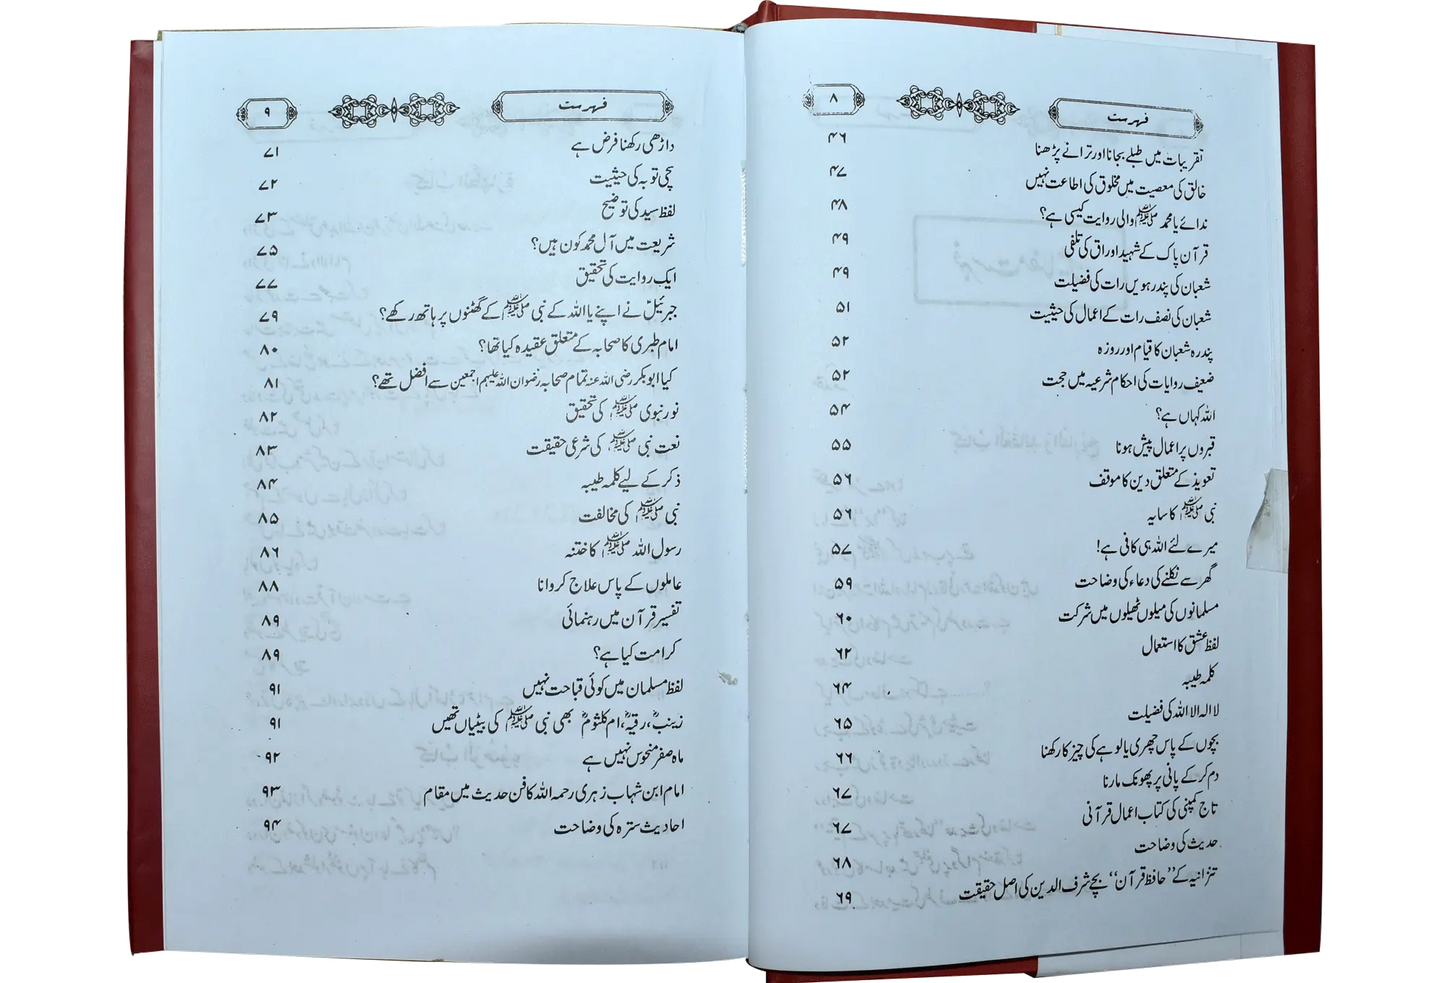 فہرست
۸
تقریبات میں طبلے بجانا اور ترانے پڑھنا ۴۶
خالق کی معصیت میں مخلوق کی اطاعت نہیں ۴۷
ندائے یا محمد ﷺ والی روایت کیسی ہے؟ ۴۸
قرآن پاک کے شہید اوراق کی تلفی ۴۹
شعبان کی پندرہویں رات کی فضیلت ۴۹
شعبان کی نصف رات کے اعمال کی حیثیت ۵۱
پندرہ شعبان کا قیام اور روزہ ۵۲
ضعیف روایات کی احکام شرعیہ میں حجت ۵۲
اللہ کہاں ہے؟ ۵۴
قبروں پر اعمال پیش ہونا ۵۵
تعویذ کے متعلق دین کا موقف ۵۶
نبی ﷺ کا سایہ ۵۶
میرے لئے اللہ ہی کافی ہے! ۵۷
گھر سے نکلنے کی دعاء کی وضاحت ۵۹
مسلمانوں کی میلوں ٹھیلوں میں شرکت ۶۰
لفظ عشق کا استعمال ۶۲
کلمہ طیبہ ۶۴
لا الہ الا اللہ کی فضیلت ۶۵
بچوں کے پاس چھری یا لوہے کی چیز کا رکھنا ۶۶
دم کر کے پانی پر پھونک مارنا ۶۷
تاج کمپنی کی کتاب اعمال قرآنی ۶۷
حدیث کی وضاحت ۶۸
تنزانیہ کے ’’حافظ قرآن‘‘ بچے شرف الدین کی اصل حقیقت ۶۹
فہرست
۹
داڑھی رکھنا فرض ہے ۷۱
سچی توبہ کی حیثیت ۷۲
لفظ سید کی توضیح ۷۳
شریعت میں آل محمد کون ہیں؟ ۷۵
ایک روایت کی تحقیق ۷۷
جبرئیلؑ نے اپنے یا اللہ کے نبی ﷺ کے گھٹنوں پر ہاتھ رکھے؟ ۷۹
امام طبری کا صحابہ کے متعلق عقیدہ کیا تھا؟ ۸۰
کیا ابوبکر رضی اللہ عنہ تمام صحابہ رضوان اللہ علیہم اجمعین سے افضل تھے؟ ۸۱
نور نبوی ﷺ کی تحقیق ۸۲
نعت نبی ﷺ کی شرعی حقیقت ۸۳
ذکر کے لیے کلمہ طیبہ ۸۴
نبی ﷺ کی مخالفت ۸۵
رسول اللہ ﷺ کا ختنہ ۸۶
عاملوں کے پاس علاج کروانا ۸۸
تفسیر قرآن میں رہنمائی ۸۹
کرامت کیا ہے؟ ۸۹
لفظ مسلمان میں کوئی قباحت نہیں ۹۱
زینبؓ، رقیہؓ، ام کلثومؓ بھی نبی ﷺ کی بیٹیاں تھیں ۹۱
ماہ صفر منحوس نہیں ہے ۹۲
امام ابن شہاب زہری رحمہ اللہ کا فن حدیث میں مقام ۹۳
احادیث سترہ کی وضاحت ۹۴